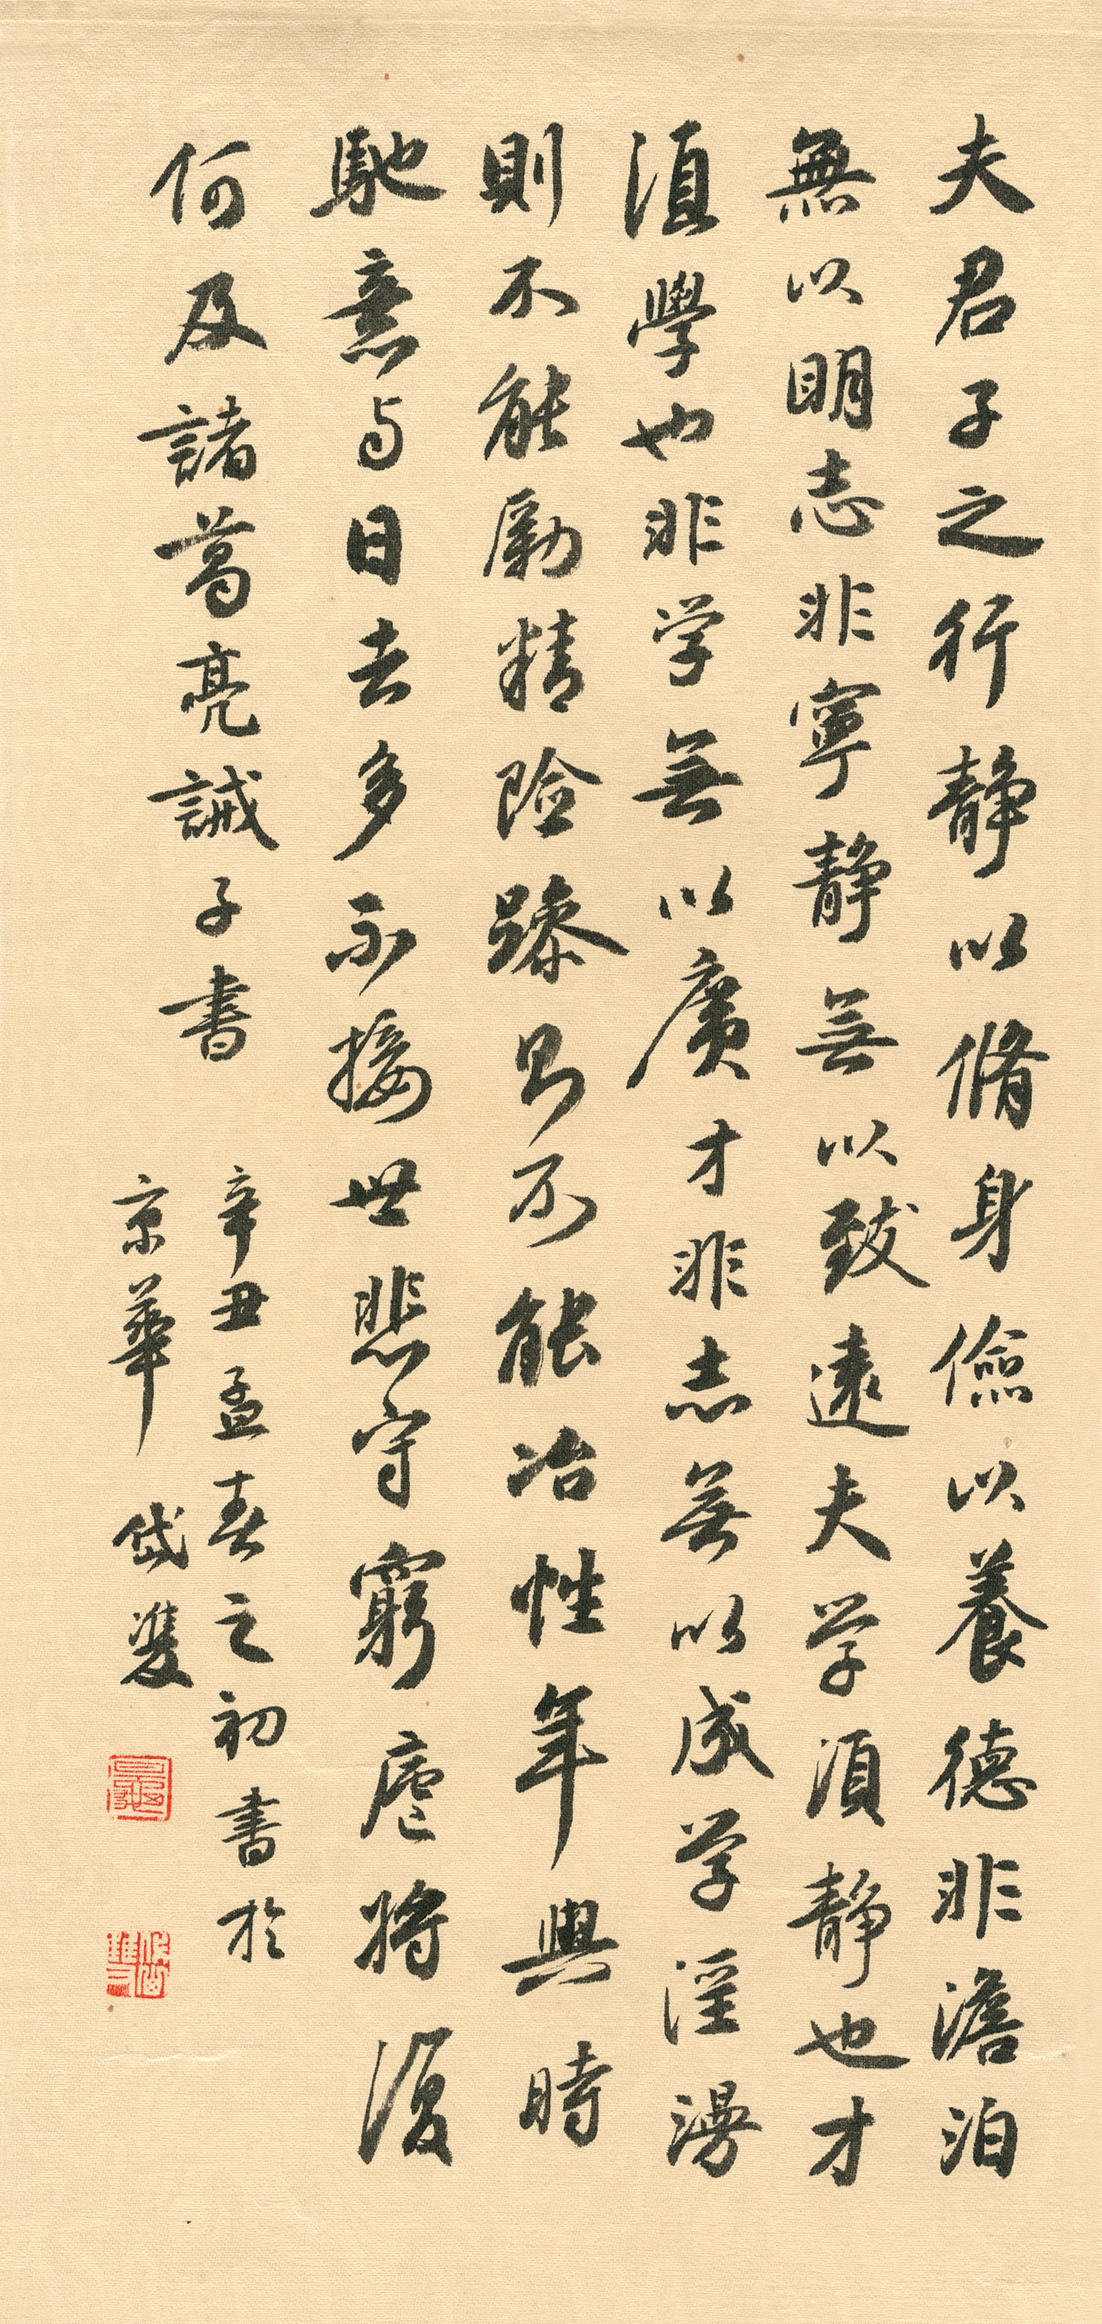 夫君子之行静以脩身儉以養德非澹泊
無以明志非寧静無以致遠夫学須静也才
須學也非学無以廣才非志無以成学淫漫
則不能勵精险躁則不能冶性年與時
馳意与日去多不接世悲守窮廬將復
何及諸葛亮誡子書
辛丑孟春之初書於
京華 岱雙